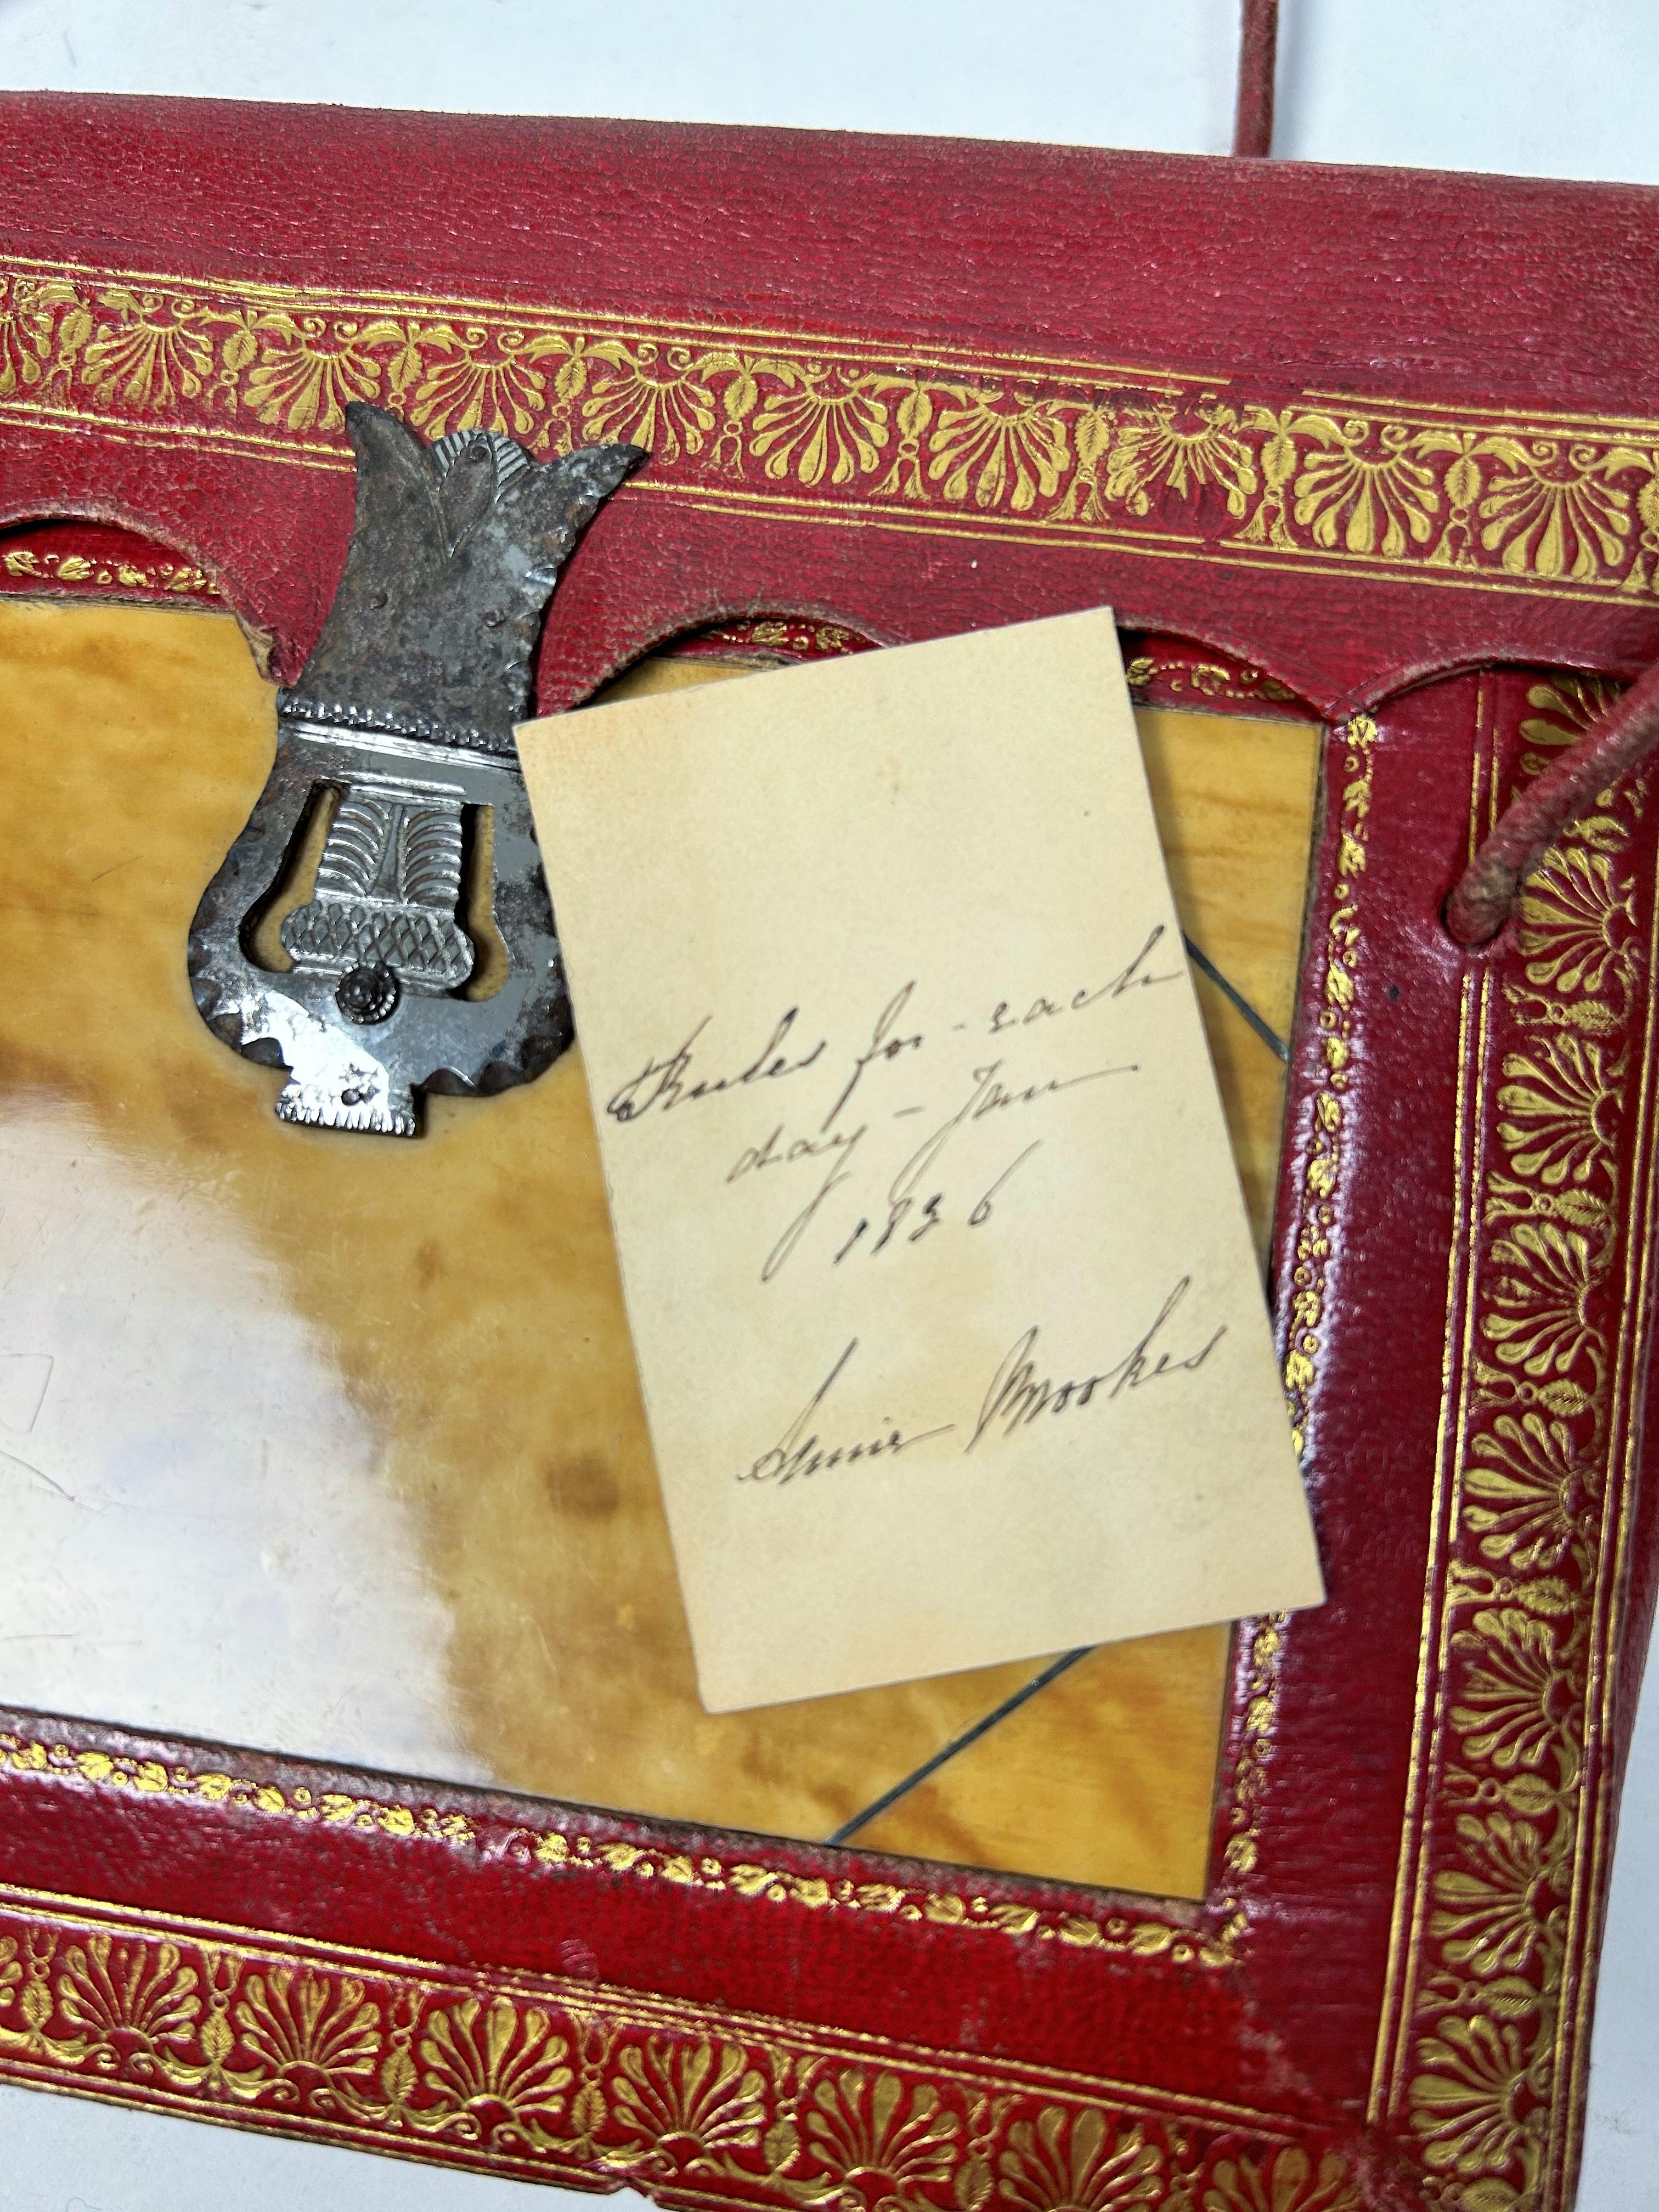 Rules for - each
day - Jan
1836
Annie Brookes